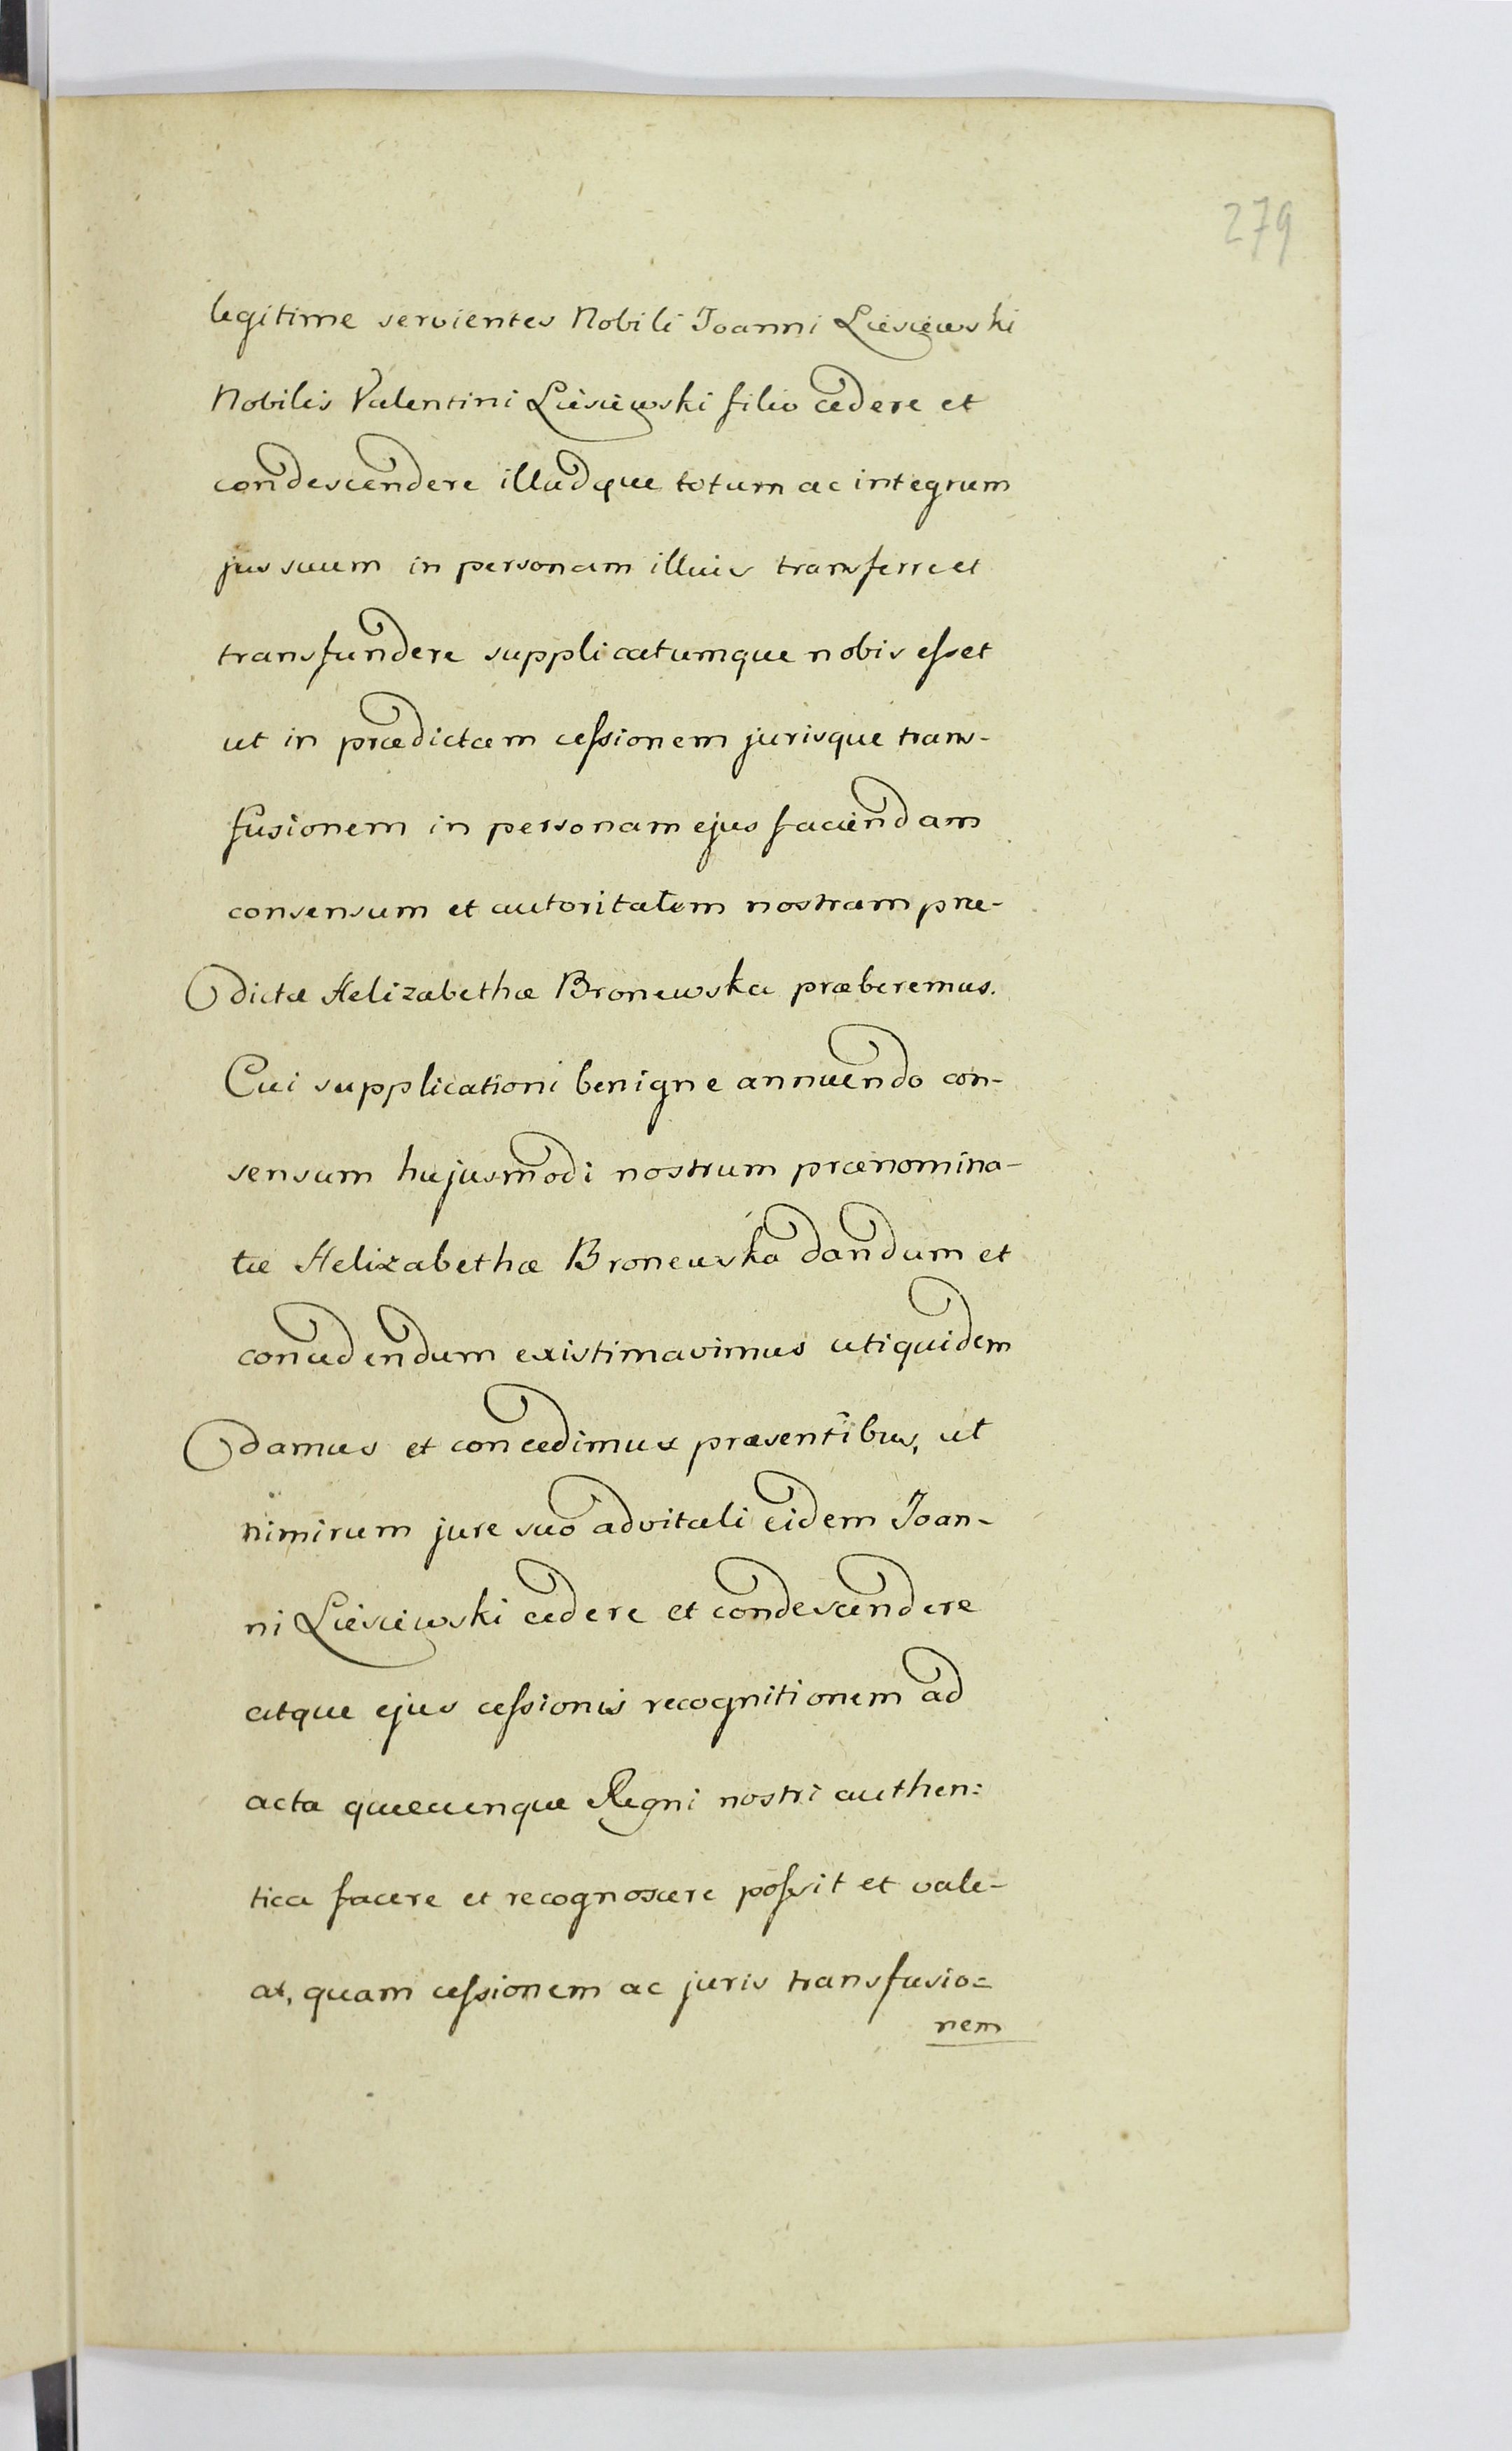 279
legitime servientes Nobili Joanni Liesiewski
Nobilis Valentini Liesiewski filio cedere et
condescendere illudque totum ac integrum
jus suum in personam illius transferre et
transfundere supplicatumque nobis esset
ut in prædictam cessionem jurisque trans-
fusionem in personam ejus faciendam
consensum et autoritatem nostram præ-
dictæ Helizabethæ Bronewska præberemus.
Cui supplicationi benigne annuendo con-
sensum hujusmodi nostrum prænomina-
tæ Helizabethæ Bronewska dandum et
concedendum existimavimus utiquidem
damus et concedimus præsentibus, ut
nimirum jure suo advitali eidem Joan-
ni Liesiewski cedere et condescendere
atque ejus cessionis recognitionem ad
acta quæcunque Regni nostri authen=
tica facere et recognoscere possit et vale-
at, quam cessionem ac juris transfusio=
nem